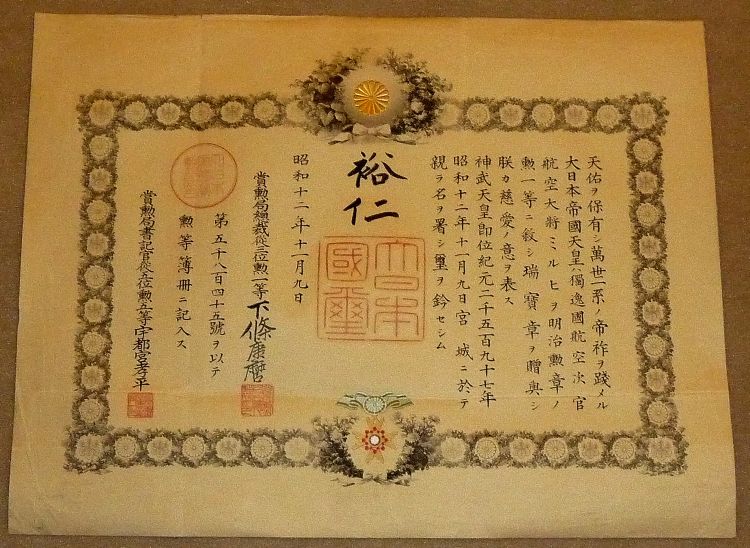 天佑ヲ保有シ萬世一系ノ帝祚ヲ踐メル
大日本帝國天皇ハ獨逸國航空次官
航空大將ミルヒヲ明治勲章ノ
勲一等ニ敍シ瑞寶章ヲ贈與シ
朕カ慈愛ノ意ヲ表ス
神武天皇即位紀元二千五百九十七年
昭和十二年十一月九日宮城ニ於テ
親ラ名ヲ署シ璽ヲ鈐セシム
裕仁
大日本國璽
昭和十二年十一月九日
賞勲局總裁從三位勲一等下條康麿
第五十八百四十五號ヲ以テ
勲等簿册ニ記入ス
賞勲局書記官從五位勲五等宇都宮孝平